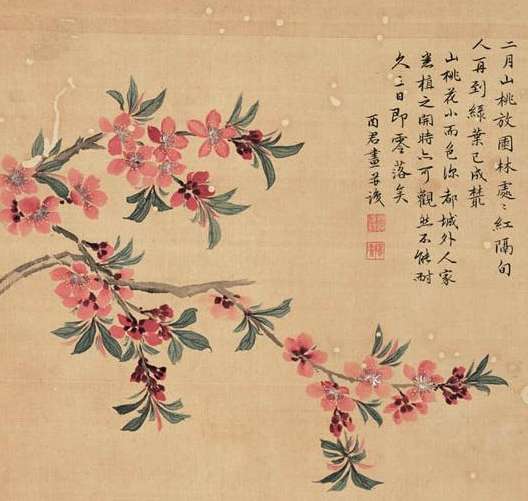 二月山桃放園林處〻紅隔旬
人再到綠葉已成叢
山桃花小而色深都城外人家
悉植之開時亦可觀然不能耐
久二日即零落矣
丙君畫并識